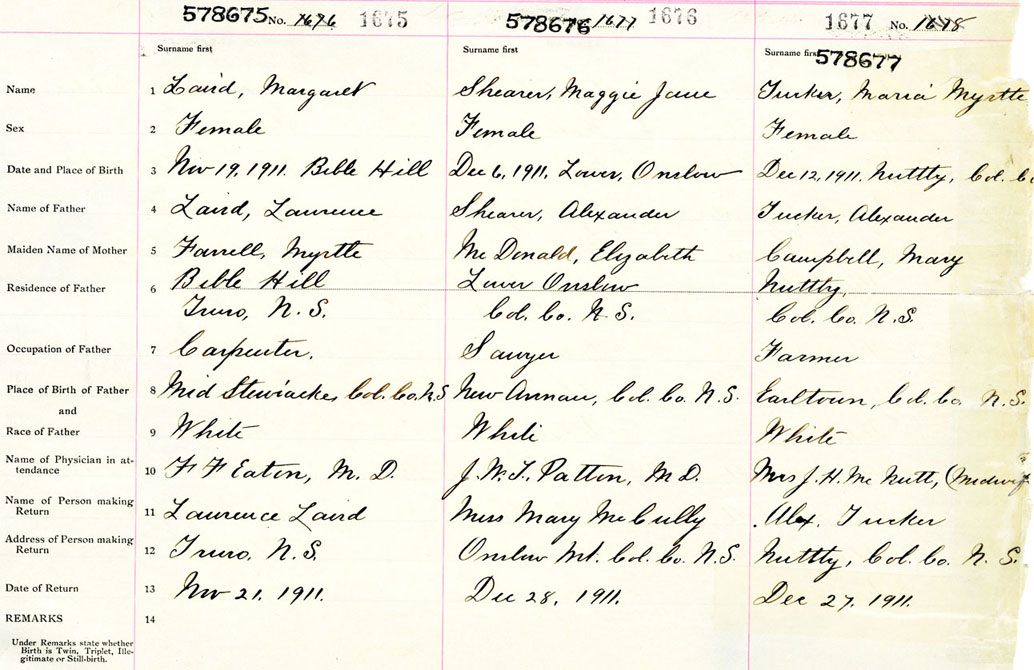 578675 No. 1676 1675 578676 1677 1676 1677 No. 1678
Surname first Surname first Surname first 578677
Name 1 Laird, Margaret Shearer, Maggie Jane Tucker, Maria Myrtle
Sex 2 Female Female Female
Date and Place of Birth 3 Nov 19, 1911. Bible Hill Dec 6, 1911, Lower, Onslow Dec 12, 1911. Nuttby, Col. C
Name of Father 4 Laird, Lawrence Shearer, Alexander Tucker, Alexander
Maiden Name of Mother 5 Farrell, Myrtle Mc Donald, Elizabeth Campbell, Mary
Residence of Father 6 Bible Hill Lower Onslow Nuttby,
Truro, N.S. Col. Co. N.S. Col. Co. N.S.
Occupation of Father 7 Carpenter. Sawyer Farmer
Place of Birth of Father 8 Mid Stewiacke, Col. Co. N.S New Annan, Col. Co. N.S. Earltown, Col. Co. N.S.
and
Race of Father 9 White White White
Name of Physician in at-
tendance 10 F F Eaton, M.D. J.W.T. Patton, M.D. Mrs J.H. Mc Nutt, (Midwif
Name of Person making
Return 11 Lawrence Laird Miss Mary McCully Alex. Tucker
Address of Person making
Return 12 Truro, N.S. Onslow Mt. Col. Co. N.S. Nuttby, Col. Co. N.S.
Date of Return 13 Nov 21, 1911. Dec 28, 1911. Dec 27, 1911.
REMARKS 14
Under Remarks state whether
Birth is Twin, Triplet, Ille-
gitimate or Still-birth.